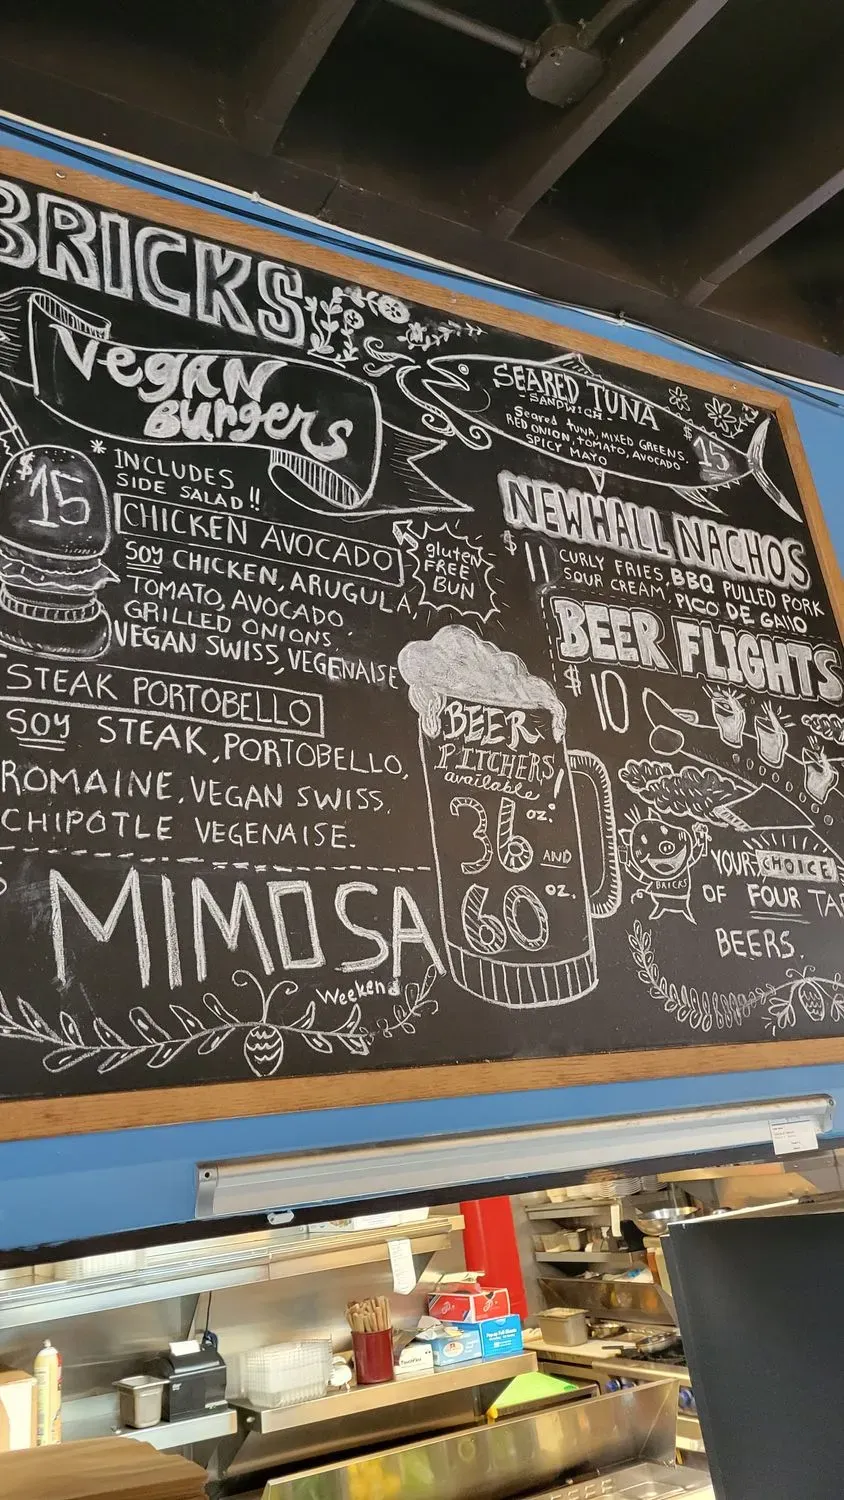 BRICKS
Vegan
Burgers
$15
* INCLUDES
SIDE SALAD!!
CHICKEN AVOCADO
SOY CHICKEN, ARUGULA,
TOMATO, AVOCADO
GRILLED ONIONS,
VEGAN SWISS, VEGENAISE
gluten
FREE
BUN
STEAK PORTOBELLO
SOY STEAK, PORTOBELLO,
ROMAINE, VEGAN SWISS,
CHIPOTLE VEGENAISE.
MIMOSA
Weekend
BEER
PITCHERS
available!
36 oz.
AND
60 oz.
SEARED TUNA
-SANDWICH-
Seared tuna, MIXED GREENS.
RED ONION, TOMATO, AVOCADO
SPICY MAYO
$15
NEWHALL NACHOS
$11
CURLY FRIES, BBQ PULLED PORK
SOUR CREAM, PICO DE GALLO
BEER FLIGHTS
$10
BRICKS
YOUR CHOICE
OF FOUR TAP
BEERS.